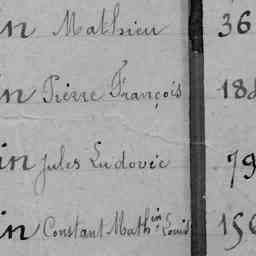 in Mathieu 36
in Pierre François 18
in Jules Ludovic 79
in Constant Math.in Louis 15